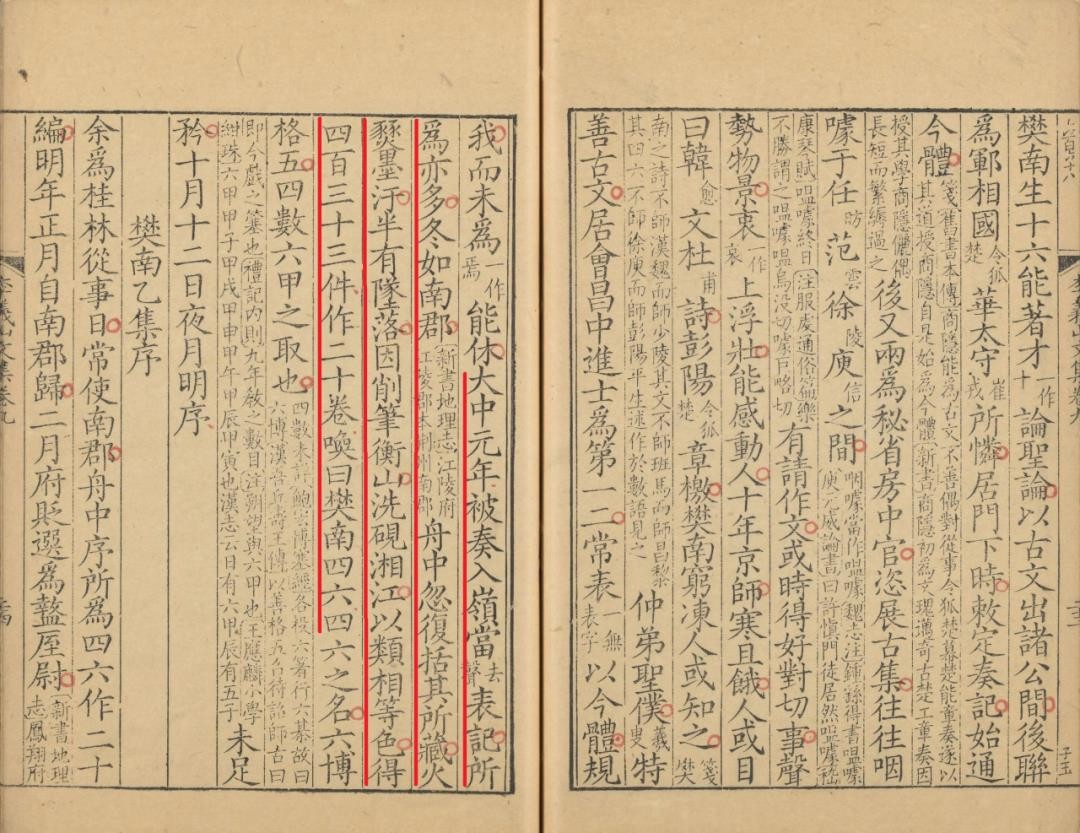 樊南生十六能著才一作十論聖論以古文出諸公間後聯
為鄆相國令狐楚華太守崔戎所憐居門下時敕定奏記始通
今體箋舊書本傳商隱能為古文不善偶對從事令狐楚幕楚能章奏遂以其道授商隱自是始為今體新書商隱初為文瑰邁奇古楚工章奏因
授其學商隱儷偶長短而繁縟過之後又兩為秘省房中官恣展古集往往咽
噱于任昉范雲徐陵庾信之間咽噱當作嗢噱魏志注鍾繇得書嗢噱庾元威論書曰許慎門徒居然嗢噱嵇
康琴賦嗢噱終日注服虔通俗篇樂不勝謂之嗢噱嗢烏没切噱巨略切有請作文或時得好對切事聲
勢物景哀一作哀上浮壯能感動人十年京師寒且餓人或目
曰韓愈文杜甫詩彭陽令狐楚章檄樊南窮凍人或知之箋樊
南之詩不師漢魏而師少陵其文不師班馬而師昌黎其四六不師徐庾而師彭陽平生述作於數語見之仲弟聖僕羲叟特
善古文居會昌中進士為第一二常表一無表字以今體規
我而未為一作焉能休大中元年被奏入嶺當去聲表記所
為亦多冬如南郡新書地理志江陵府江陵郡本荆州南郡舟中忽復括其所藏火
燹墨汙半有墜落因削筆衡山洗硯湘江以類相等色得
四百三十三件作二十卷喚曰樊南四六四六之名六博
格五四數六甲之取也四數未詳鮑宏博塞經各投六箸行六棊故曰六博漢吾丘壽王傳以善格五召待詔師古曰
即今戲之簺也禮記内則九年敎之數日注朔望與六甲也王應麟小學紺珠六甲甲子甲戌甲申甲午甲辰甲寅也漢志云日有六甲辰有五子未足
矜十月十二日夜月明序
樊南乙集序
余為桂林從事日常使南郡舟中序所為四六作二十
編明年正月自南郡歸二月府貶選為盩厔尉新書地理志鳳翔府